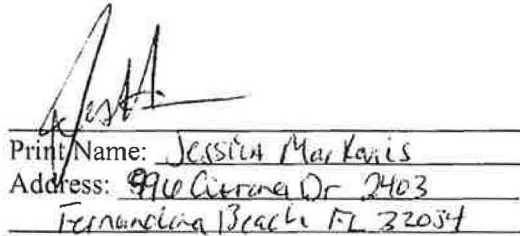 Print Name: Jessica Markanis
Address: Dr 2403
Fernandina Beach FL 32034